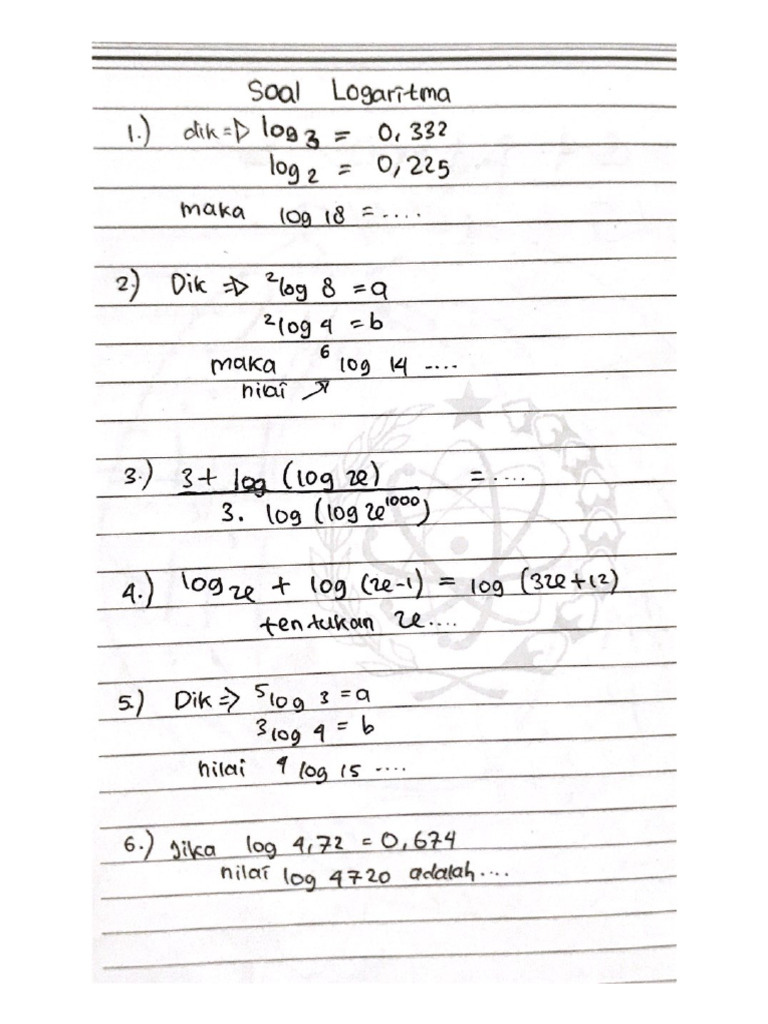 Soal Logaritma
1.) dik => log 3 = 0,332
log 2 = 0,225
maka log 18 = ....
2.) Dik => ²log 8 = a
²log 4 = b
maka ⁶log 14 ....
nilai ↗
3.) 3 + log (log x) = ....
3. log (log x¹⁰⁰⁰)
4.) log x + log (x-1) = log (3x+12)
tentukan x....
5.) Dik => ⁵log 3 = a
³log 4 = b
nilai ⁴log 15 ....
6.) Jika log 4,72 = 0,674
nilai log 4720 adalah....